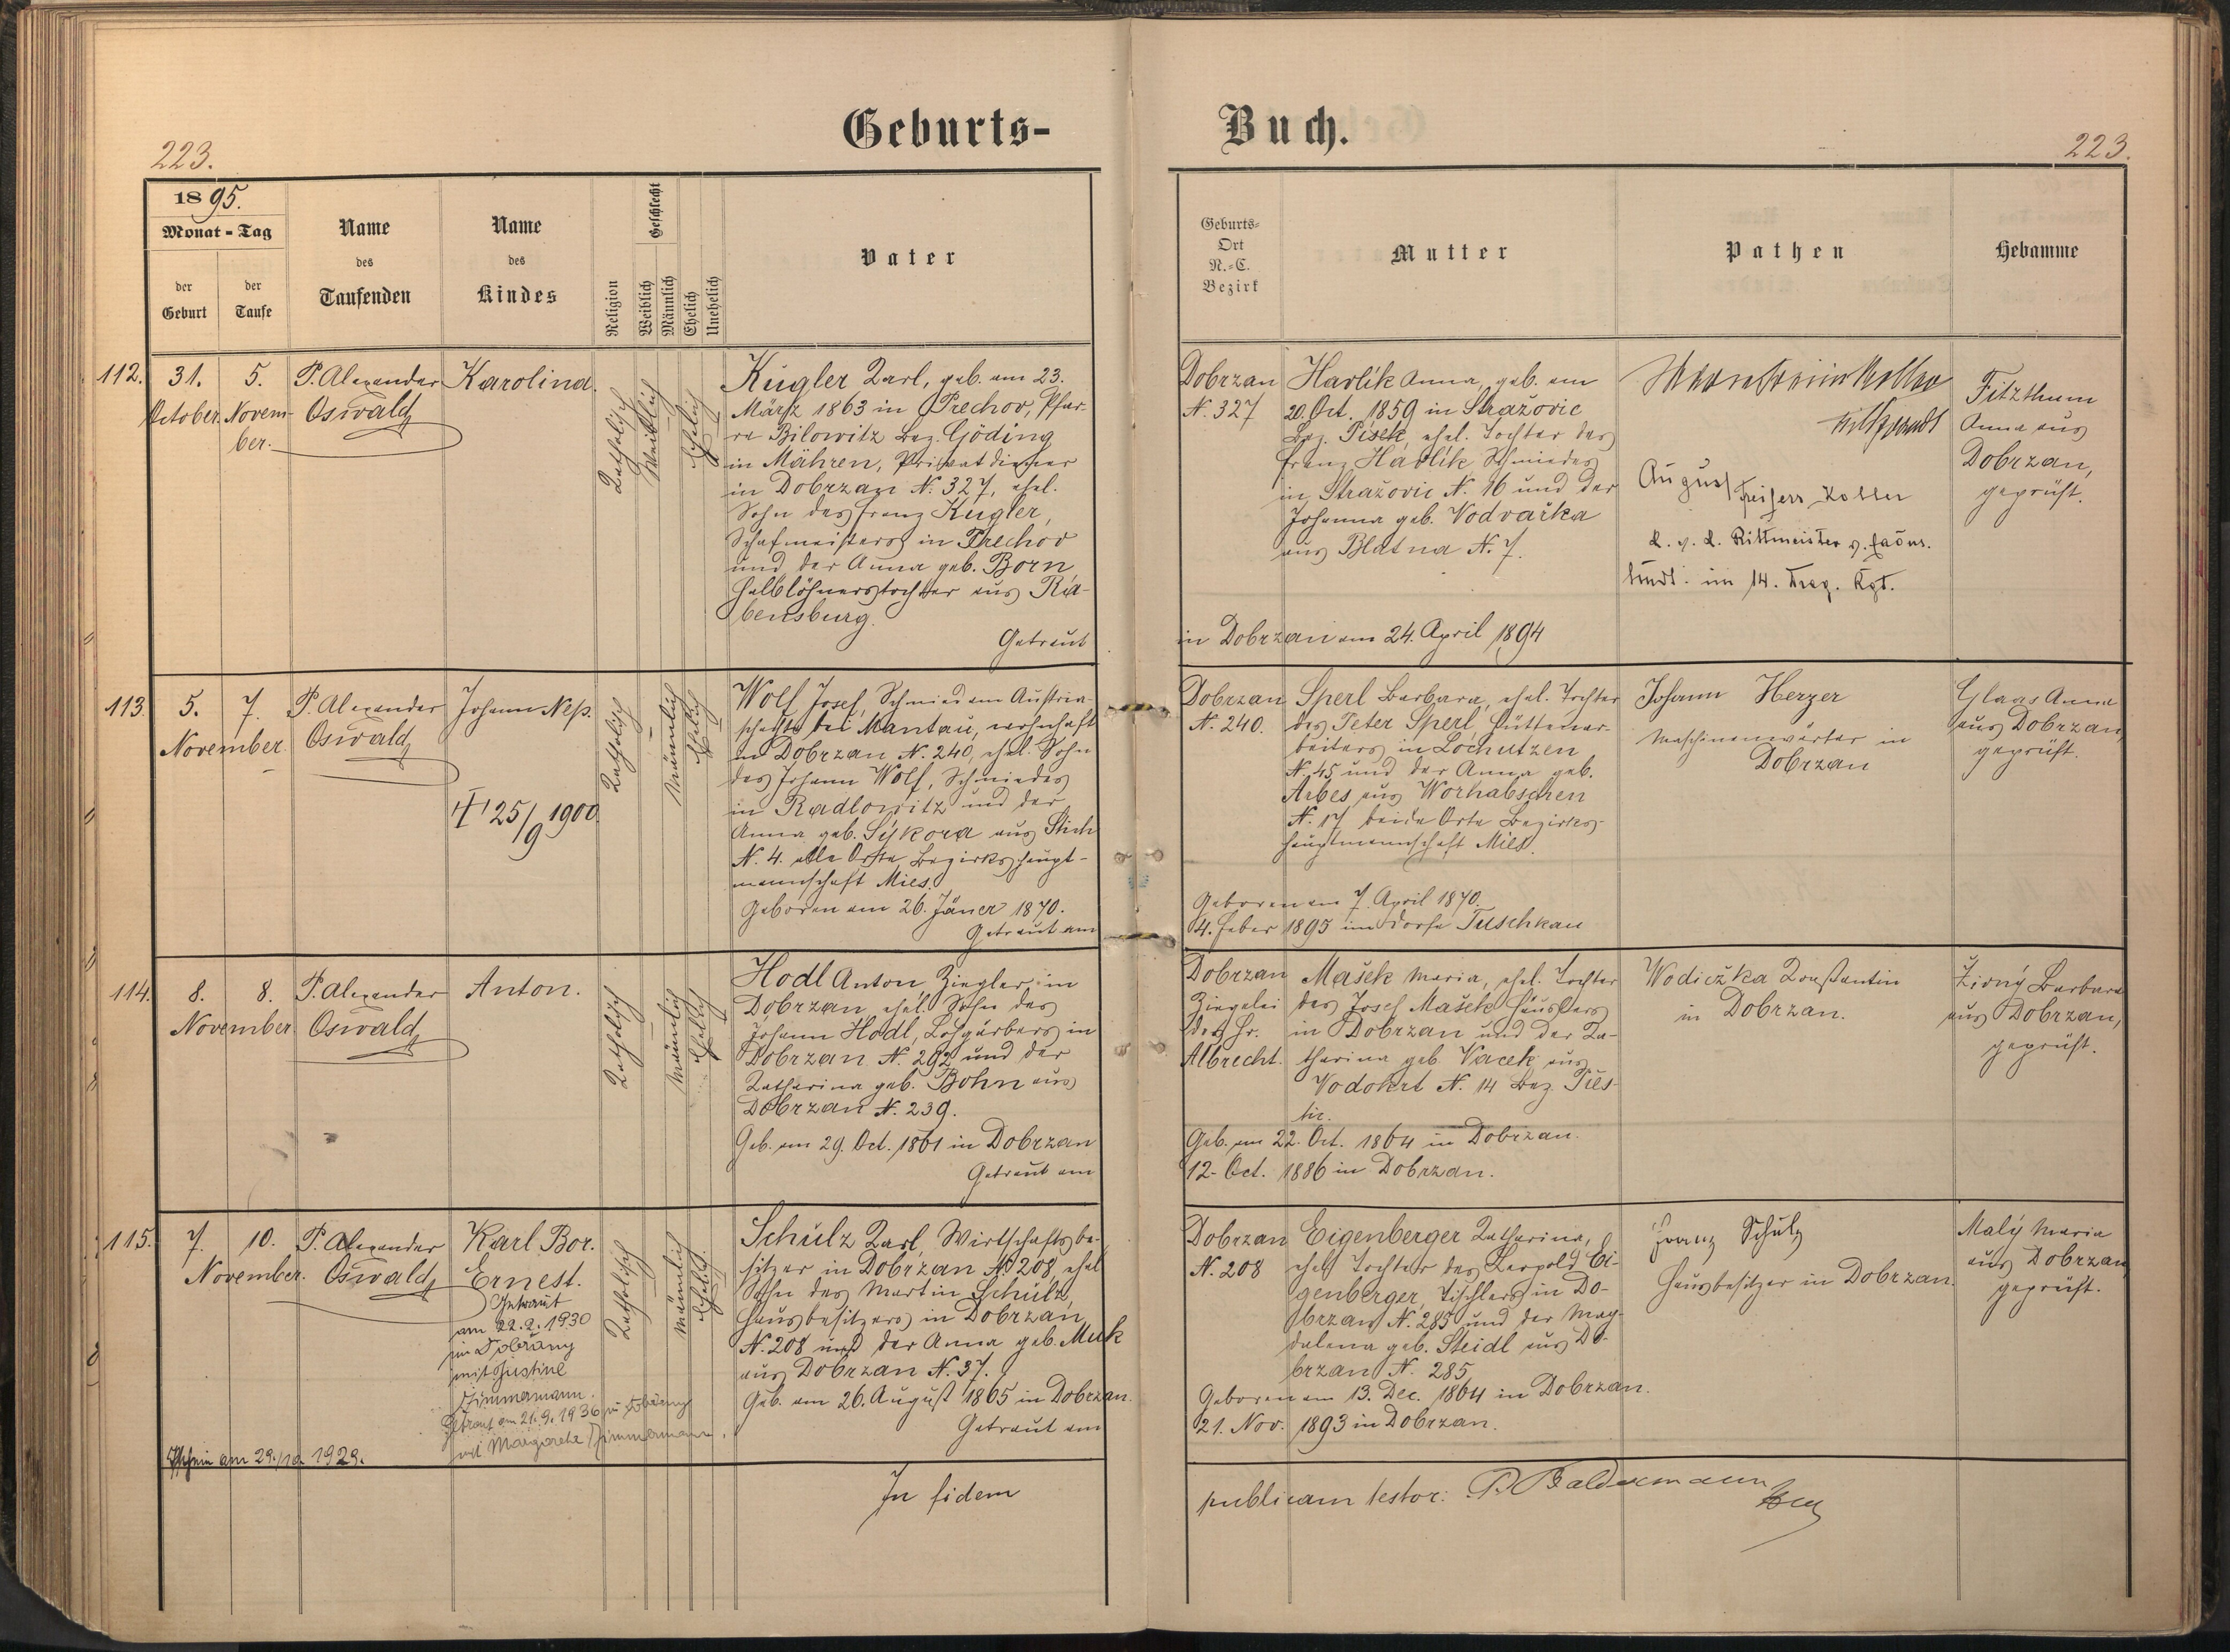 Geburts-
Buch.
223.
223.
1895.
Monat - Tag
der Geburt
der Taufe
Name des Taufenden
Name des Kindes
Religion
Geschlecht
Weiblich
Männlich
Ehelich
Unehelich
Vater
Geburts-
Ort
N.-C.
Bezirk
Mutter
Pathen
Hebamme
112.
31.
October.
5.
Novem-
ber.
P. Alexander
Oswald
Karolina.
Katholisch
Weiblich
Ehelich
Kugler Karl, geb. am 23.
März 1863 in Prechov, Pfar-
re Bilowitz Bez. Göding
in Mähren, Privatdiener
in Dobrzan N. 327, ehel.
Sohn des Franz Kugler,
Schafmeisters in Prechov
und der Anna geb. Born
Halblöhnerstochter aus Ra-
bensburg.
Getraut
Dobrzan
N. 327
Havlík Anna, geb. am
20. Oct. 1859 in Stražovic
Bez. Písek, ehel. Tochter des
Franz Havlík, Schmiedes
in Stražovic N. 16 und der
Johanna geb. Vodvařka
aus Blatna N. 7.
in Dobrzan am 24. April 1894
August Freiherr Koller
k. u. k. Rittmeister
im 14. Drag. Rgt.
Fitzthum
Anna aus
Dobrzan,
geprüft.
113.
5.
7.
November
P. Alexander
Oswald
Johann Nep.
25/9 1900.
Katholisch
Männlich
Ehelich
Wolf Josef, Schmied am Austria-
schachte bei Mantau, wohnhaft
in Dobrzan N. 240, ehel. Sohn
des Johann Wolf, Schmiedes
in Radlowitz und der
Anna geb. Sýkora aus Stich
N. 4. alle Orte Bezirkshaupt-
mannschaft Mies.
Geboren am 26. Jäner 1870.
Getraut am
Dobrzan
N. 240.
Sperl Barbara, ehel. Tochter
des Peter Sperl, Hüttenar-
beiters in Lochutzen
N. 45 und der Anna geb.
Arbes aus Worhabschen
N. 17 beide Orte Bezirks-
hauptmannschaft Mies.
Geboren am 7. April 1870.
4. Feber 1895 im Dorfe Tuschkau
Johann Herzer
Maschinenwärter in
Dobrzan
Glaas Anna
aus Dobrzan,
geprüft.
114.
8.
8.
November
P. Alexander
Oswald
Anton.
Katholisch
Männlich
Ehelich
Hodl Anton, Ziegler in
Dobrzan, ehel. Sohn des
Johann Hodl, Lohgärbers in
Dobrzan N. 292 und der
Katharina geb. Bohn aus
Dobrzan N. 239.
Geb. am 29. Oct. 1861 in Dobrzan
Getraut am
Dobrzan
Ziegelei
des Hr.
Albrecht.
Mašek Maria, ehel. Tochter
des Josef Mašek Häuslers
in Dobrzan und der Ka-
tharina geb. Vacek aus
Vodokrt N. 14 Bez. Přes-
tic.
Geb. am 22. Oct. 1864 in Dobrzan.
12. Oct. 1886 in Dobrzan.
Wodiczka Konstantin
in Dobrzan.
Žirný Barbara
aus Dobrzan,
geprüft.
115.
7.
10.
November.
P. Alexander
Oswald
Karl Bor.
Ernest.
Getraut
am 22.2.1930
in Dobřany
mit Justine
Zimmermann.
Getraut am 21.9.1936 in Dobřany
mit Margarete Zimmermann.
am 29./10. 1929.
Katholisch
Männlich
Ehelich.
Schulz Karl, Wirtschaftsbe-
sitzer in Dobrzan N. 208, ehel.
Sohn des Martin Schulz,
Hausbesitzers in Dobrzan
N. 208 und der Anna geb. Muk
aus Dobrzan N. 37.
Geb. am 26. August 1865 in Dobrzan.
Getraut am
Dobrzan
N. 208
Eigenberger Katharina,
ehel. Tochter des Leopold Ei-
genberger, Tischlers in Do-
brzan N. 285 und der Mag-
dalena geb. Steidl aus Do-
brzan N. 285
Geboren am 13. Dec. 1864 in Dobrzan.
21. Nov. 1893 in Dobrzan.
Franz Schulz
Hausbesitzer in Dobrzan.
Malý Maria
aus Dobrzan
geprüft.
In fidem
publicam testor: